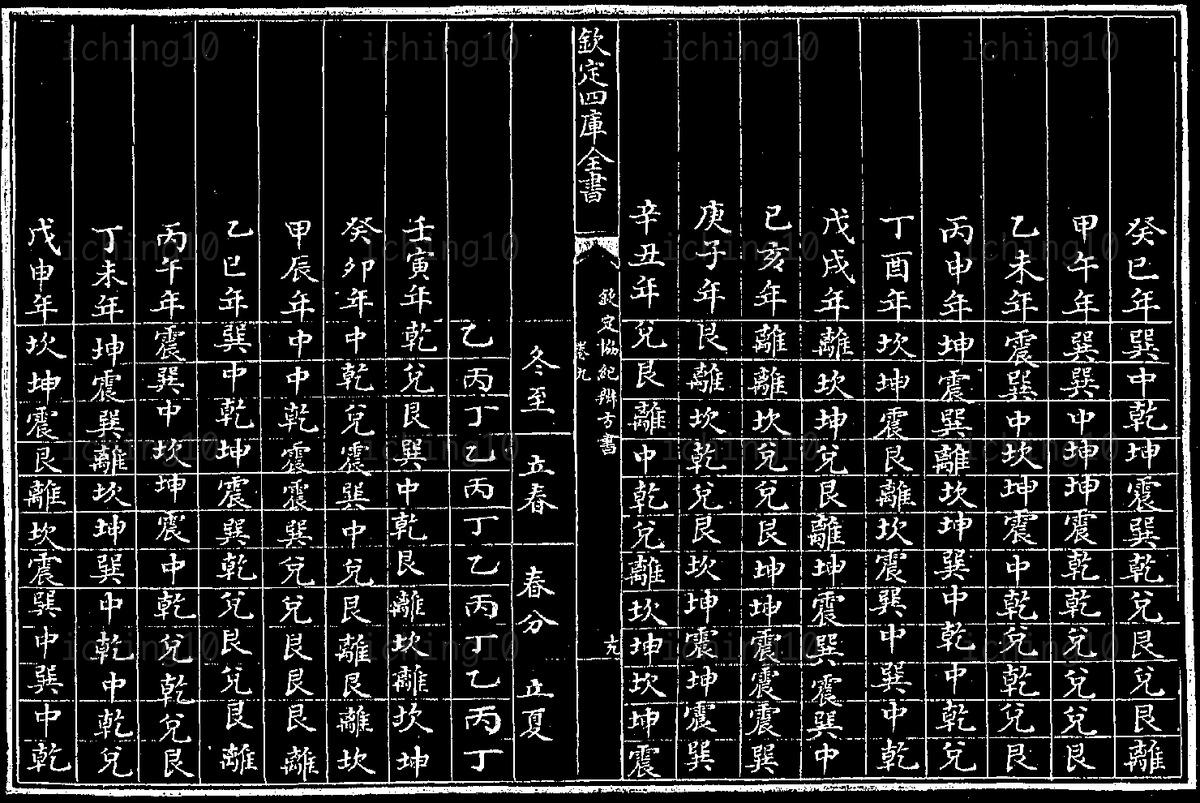 癸巳年巽中乾坤震巽乾兌艮兌艮離
甲午年巽巽中坤坤震乾乾兌兌兌艮
乙未年震巽中坎坤震中乾兌乾兌艮
丙申年坤震巽離坎坤巽中乾中乾兌
丁酉年坎坤震艮離坎震巽中巽中乾
戊戌年離坎坤兌艮離坤震巽震巽中
己亥年離離坎兌兌艮坤坤震震震巽
庚子年艮離坎乾兌艮坎坤震坤震巽
辛丑年兌艮離中乾兌離坎坤坎坤震
欽定四庫全書
欽定協紀辨方書
卷九
十九
冬至 立春 春分 立夏
乙丙丁乙丙丁乙丙丁乙丙丁
壬寅年乾兌艮巽中乾艮離坎離坎坤
癸卯年中乾兌震巽中兌艮離艮離坎
甲辰年中中乾震震巽兌兌艮艮艮離
乙巳年巽中乾坤震巽乾兌艮兌艮離
丙午年震巽中坎坤震中乾兌乾兌艮
丁未年坤震巽離坎坤巽中乾中乾兌
戊申年坎坤震艮離坎震巽中巽中乾
iching10 iching10 iching10 iching10
iching10 iching10 iching10 iching10
iching10 iching10 iching10 iching10
iching10 iching10 iching10 iching10